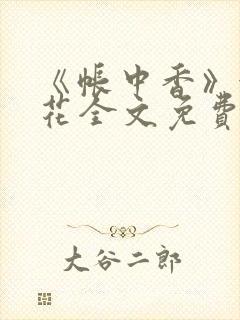 《帐中香》
花全文免費
大谷二郎